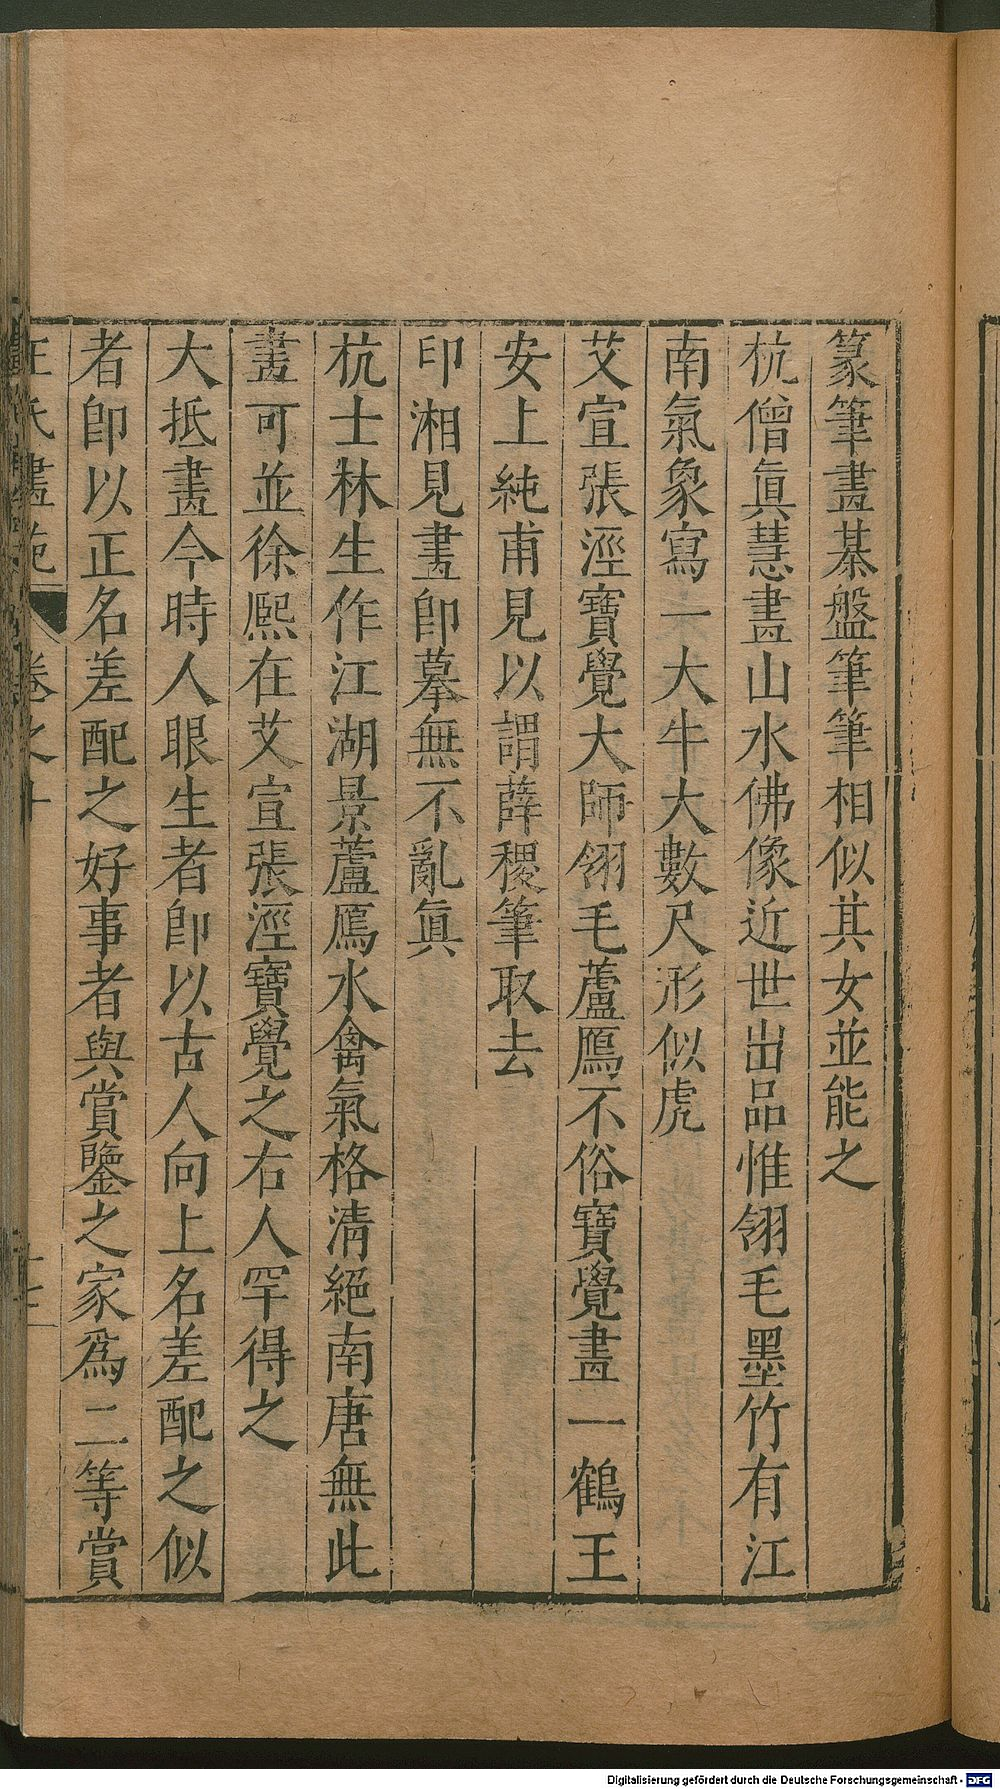 篆筆畫棊盤筆筆相似其女並能之
杭僧眞慧畫山水佛像近世出品惟翎毛墨竹有江
南氣象寫一大牛大數尺形似虎
艾宣張涇寶覺大師翎毛蘆鴈不俗寶覺畫一鶴王
安上純甫見以謂薛稷筆取去
印湘見畫卽摹無不亂眞
杭士林生作江湖景蘆鴈水禽氣格清絕南唐無此
畫可並徐熙在艾宣張涇寶覺之右人罕得之
大抵畫今時人眼生者卽以古人向上名差配之似
者卽以正名差配之好事者與賞鑒之家爲二等賞
王氏畫苑 卷之十
Digitalisierung gefördert durch die Deutsche Forschungsgemeinschaft - DFG